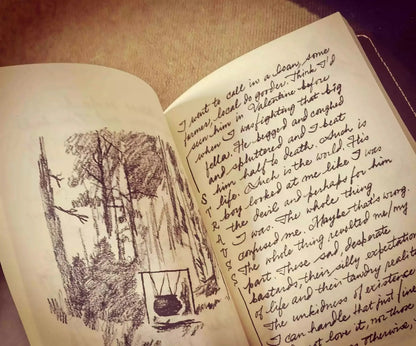 I went to call in a loan, some
farmer, local do gooder. Think I'd
seen him in Valentine before
when I was fighting that big
fella. He begged and coughed
and spluttered and I beat
him half to death. Such is
life. Such is the world. His
boy looked at me like I was
the devil and perhaps for him
I was. The whole thing
confused me. Maybe that's wrong.
The whole thing revolted me/my
part. These sad desperate
bastards, their silly expectations
of life and their tawdry reality
The unkindness of existence
I can handle that just fine
not love it, nor those
otherwise.
STRAUSS